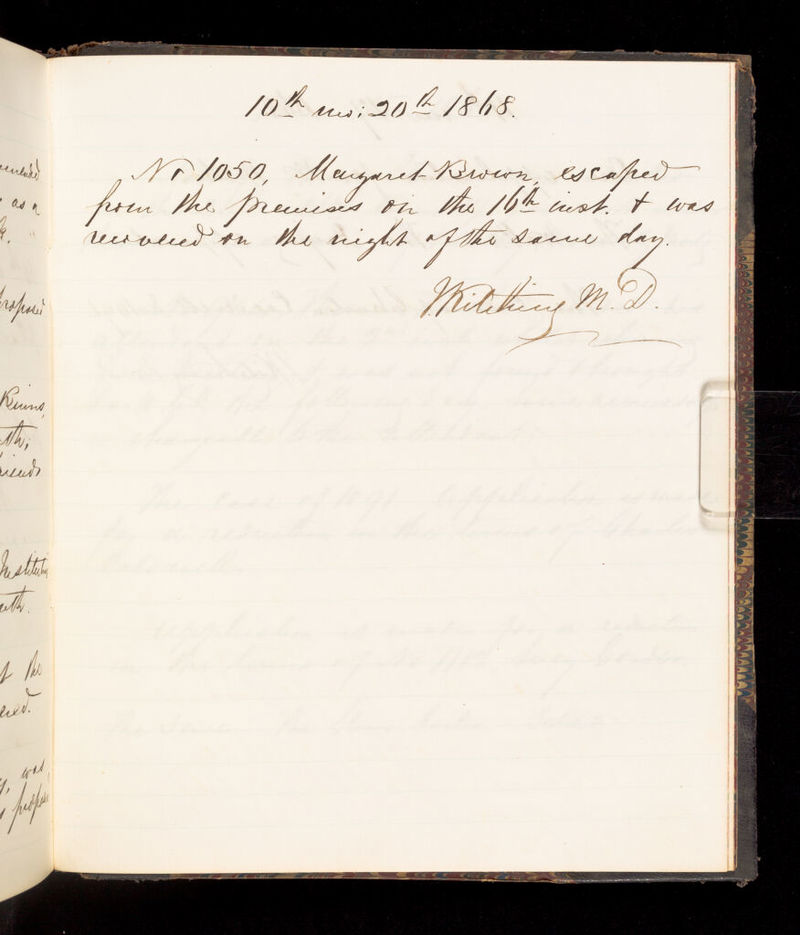 10th mo: 20th 1868.
No 1050, Margaret Brown, escaped
from the premises on the 16th inst. & was
recovered on the night of the same day.
JKitching M.D.